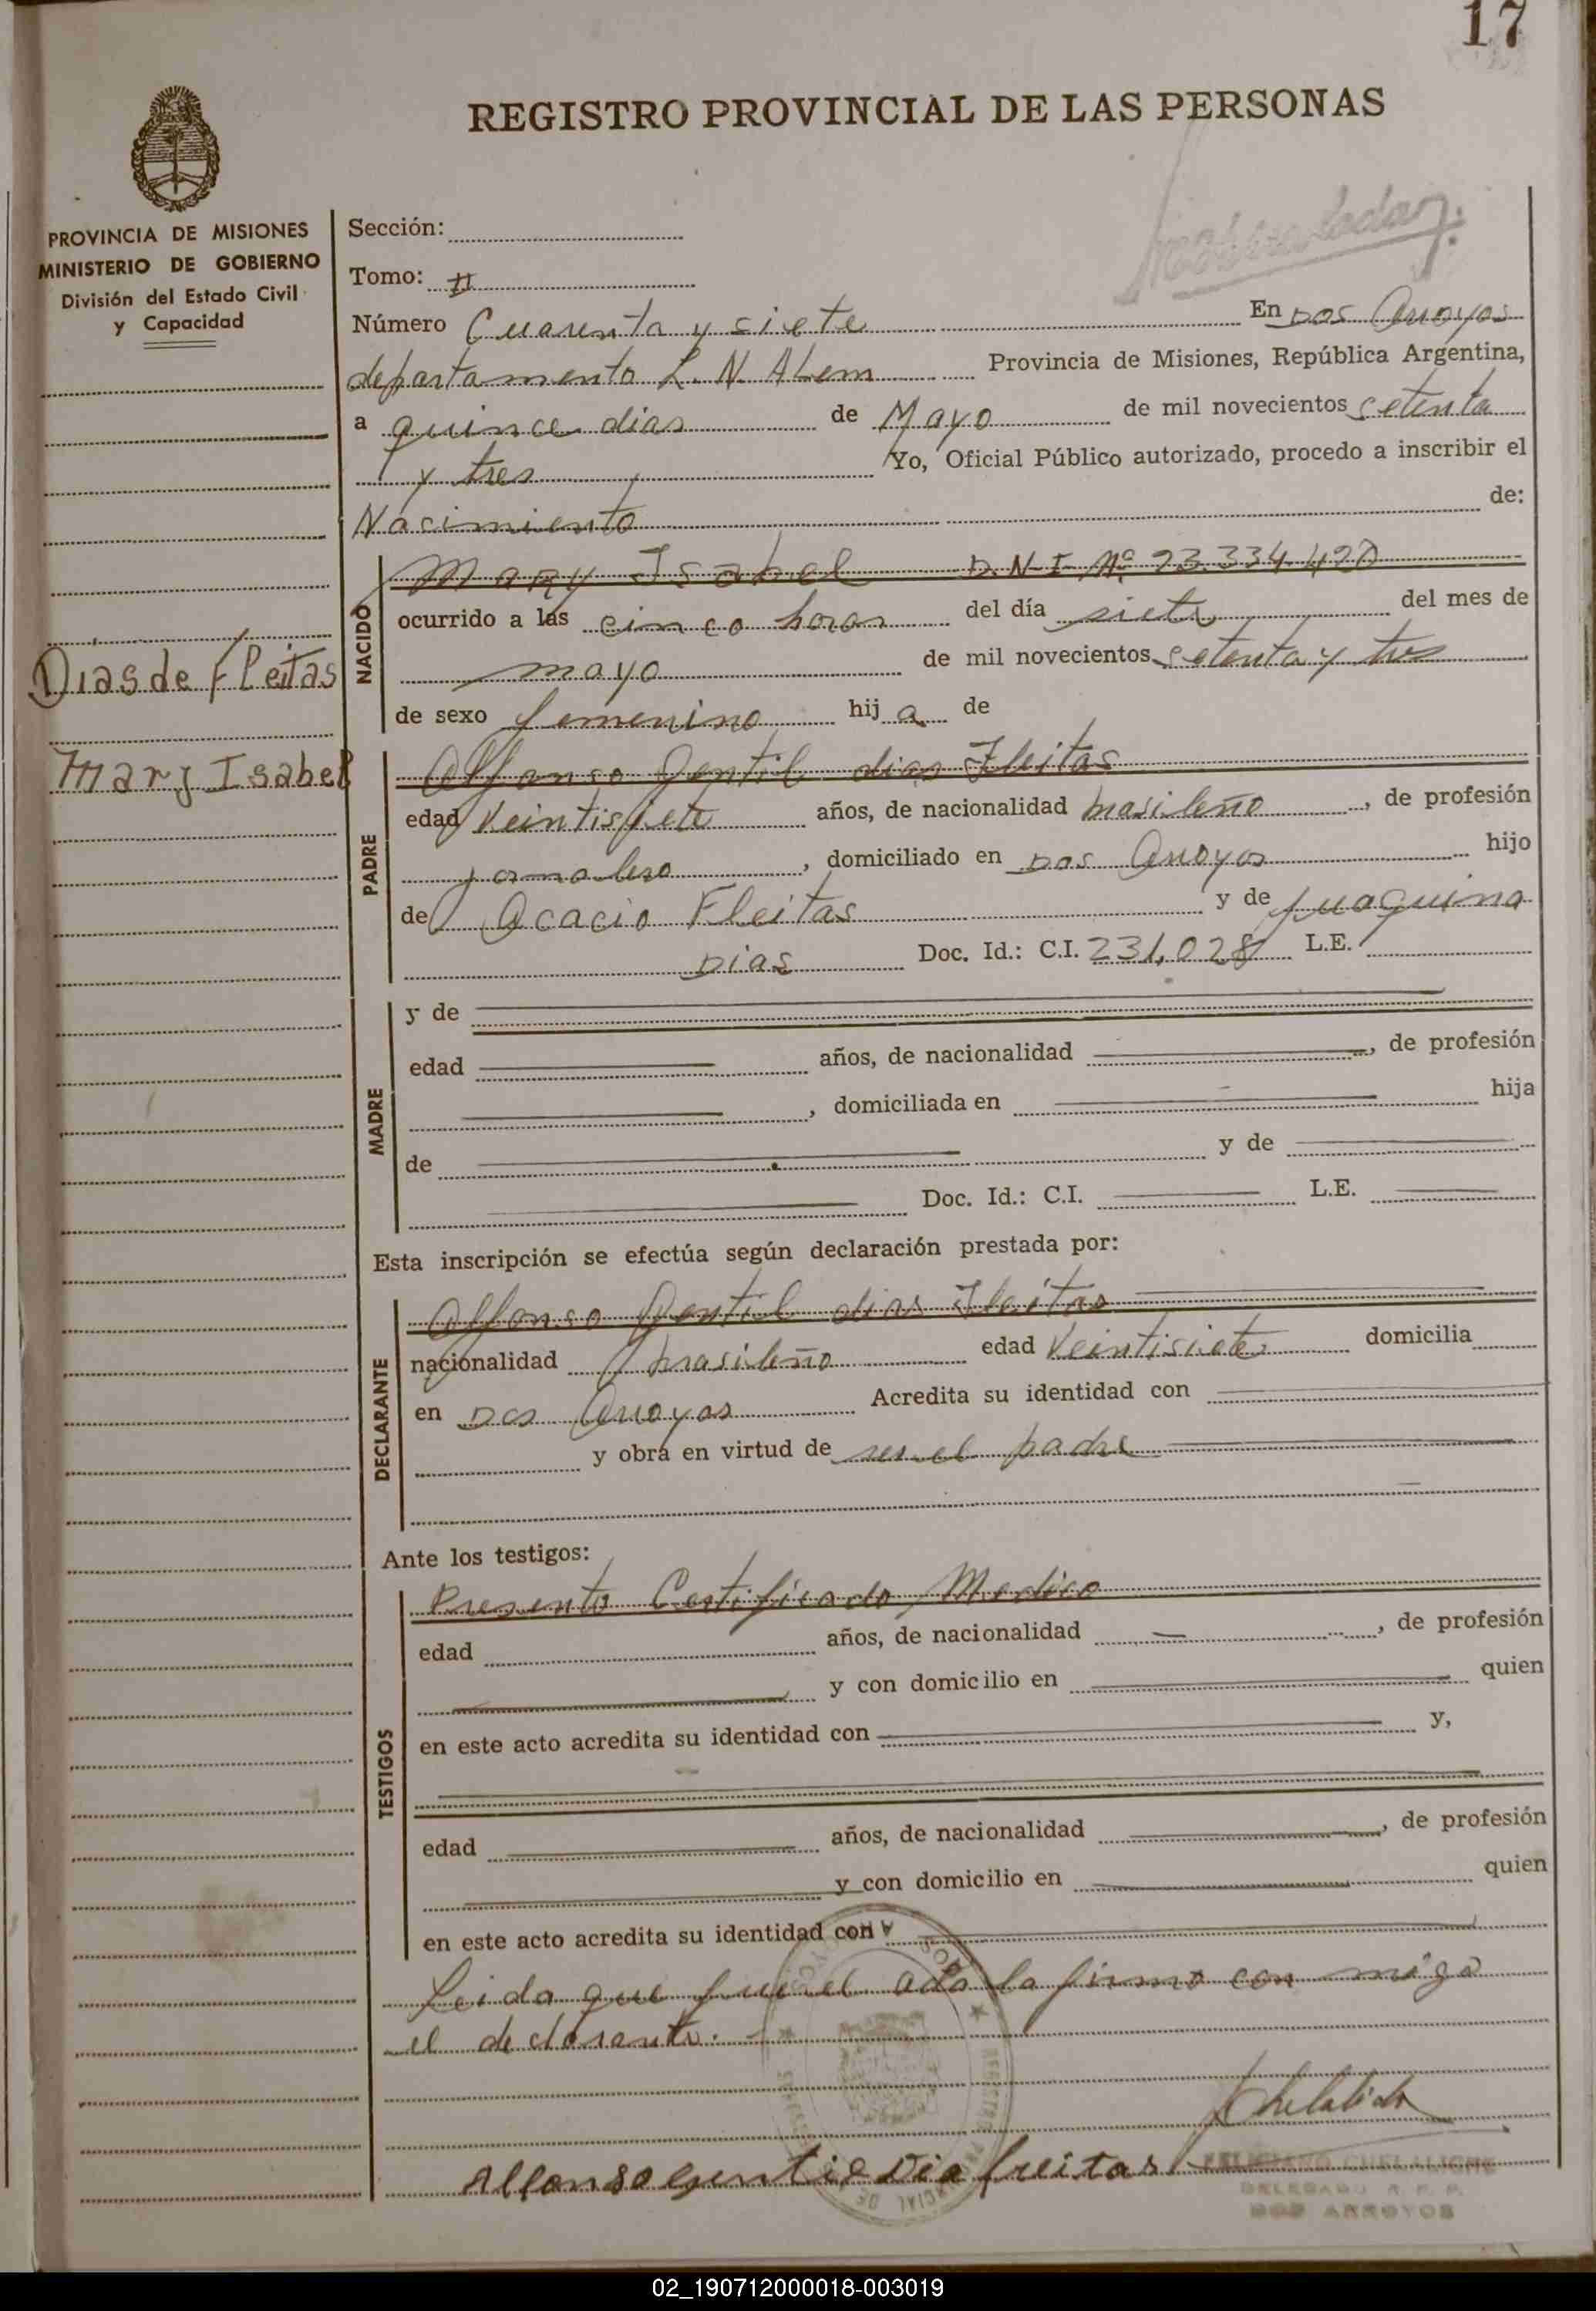 17
REGISTRO PROVINCIAL DE LAS PERSONAS
PROVINCIA DE MISIONES
MINISTERIO DE GOBIERNO
División del Estado Civil
y Capacidad
Dias de Fleitas
Mary Isabel
Sección:
Tomo: II
Número Cuarenta y siete En Dos Arroyos
departamento L. N. Alem Provincia de Misiones, República Argentina,
a quince dias de Mayo de mil novecientos setenta
y tres Yo, Oficial Público autorizado, procedo a inscribir el
Nacimiento de:
NACIDO
Mary Isabel D.N.I. Nº 23.334.420
ocurrido a las cinco horas del día siete del mes de
mayo de mil novecientos setenta y tres
de sexo femenino hij a de
PADRE
Alfonso Gentil dias Fleitas
edad Veintisiete años, de nacionalidad brasileño, de profesión
jornalero, domiciliado en Dos Arroyos hijo
de Acacio Fleitas y de juaquina
Dias Doc. Id.: C.I. 231.028 L.E.
MADRE
y de
edad años, de nacionalidad , de profesión
, domiciliada en hija
de y de
Doc. Id.: C.I. L.E.
Esta inscripción se efectúa según declaración prestada por:
DECLARANTE
Alfonso Gentil dias Fleitas
nacionalidad brasileño edad Veintisiete domicilia
en Dos Arroyos Acredita su identidad con
y obra en virtud de ser el padre
Ante los testigos:
TESTIGOS
Presento Certificado Medico
edad años, de nacionalidad , de profesión
y con domicilio en quien
en este acto acredita su identidad con y,
edad años, de nacionalidad , de profesión
y con domicilio en quien
en este acto acredita su identidad con
Leida que fue el acta la firma con migo
el declarante.
Alfonso Gentil Dia freitas
DELEGADO R. P. P.
DOS ARROYOS
02_190712000018-003019